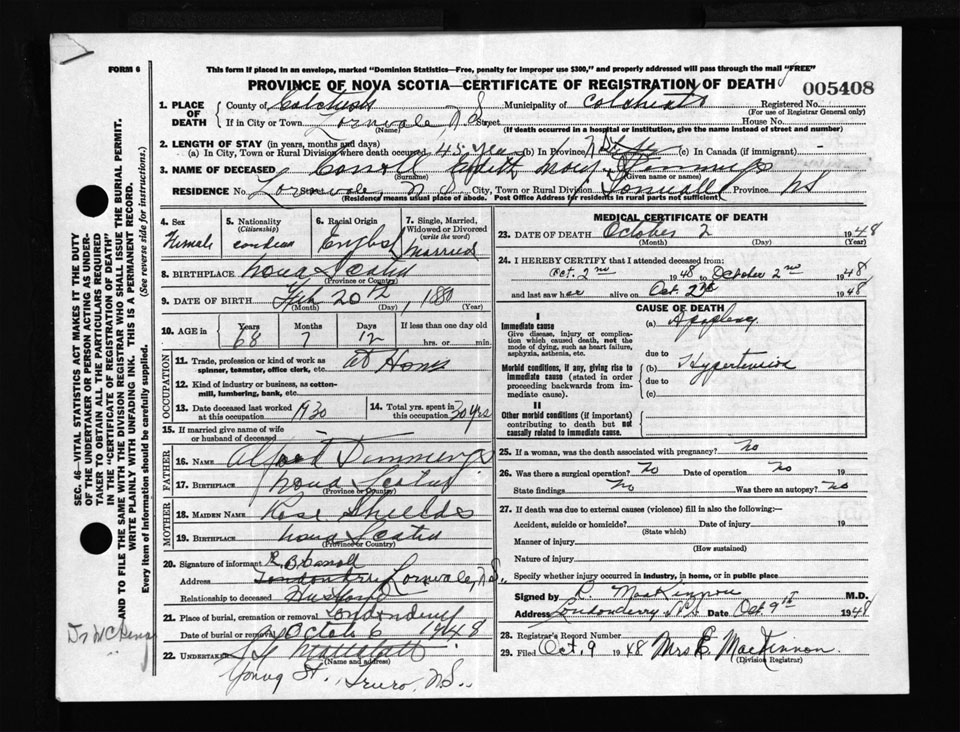 FORM 6
This form if placed in an envelope, marked "Dominion Statistics—Free, penalty for improper use $300," and properly addressed will pass through the mail "FREE"
PROVINCE OF NOVA SCOTIA—CERTIFICATE OF REGISTRATION OF DEATH
005408
1. PLACE OF DEATH
County of
Municipality of
Registered No.
(For use of Registrar General only)
If in City or Town Lornvale, N S. Street House No.
(Name) (If death occurred in a hospital or institution, give the name instead of street and number)
2. LENGTH OF STAY (in years, months and days)
(a) In City, Town or Rural Division where death occurred 45 year (b) In Province (c) In Canada (if immigrant)
3. NAME OF DECEASED
(Surname) (Given name or names)
RESIDENCE No. Lornevale, N S. City, Town or Rural Division Province NS
(Residence means usual place of abode. Post Office Address for residents in rural parts not sufficient)
4. Sex
Female
5. Nationality (Citizenship)
6. Racial Origin
English
7. Single, Married, Widowed or Divorced (write the word)
Married
8. BIRTHPLACE Nova Scotia
(Province or Country)
9. DATE OF BIRTH Feb 20th, 1880
(Month) (Day) (Year)
10. AGE in
Years Months Days If less than one day old
68 7 12 hrs. or min.
OCCUPATION
11. Trade, profession or kind of work as spinner, teamster, office clerk, etc. at Home
12. Kind of industry or business, as cotton-mill, lumbering, bank, etc.
13. Date deceased last worked at this occupation 1930
14. Total yrs. spent in this occupation 30 yrs
15. If married give name of wife or husband of deceased
FATHER
16. NAME
17. BIRTHPLACE Nova Scotia
(Province or Country)
MOTHER
18. MAIDEN NAME Rose Shields
19. BIRTHPLACE Nova Scotia
(Province or Country)
20. Signature of informant
Address Londonderry Lornvale, N S.
Relationship to deceased Husband
21. Place of burial, cremation or removal Londonderry
Date of burial or removal 6 1948
22. UNDERTAKER
(Name and address)
Young St., Truro, N.S.
MEDICAL CERTIFICATE OF DEATH
23. DATE OF DEATH October 2 1948
(Month) (Day) (Year)
24. I HEREBY CERTIFY that I attended deceased from:
Oct. 2nd 1948 to October 2nd 1948
and last saw her alive on Oct. 2nd 1948
CAUSE OF DEATH
I
Immediate cause
Give disease, injury or complication which caused death, not the mode of dying, such as heart failure, asphyxia, asthenia, etc.
(a) Apoplexy
due to
Morbid conditions, if any, giving rise to immediate cause (stated in order proceeding backwards from immediate cause).
(b) Hypertension
due to
(c)
II
Other morbid conditions (if important) contributing to death but not causally related to immediate cause.
25. If a woman, was the death associated with pregnancy? No
26. Was there a surgical operation? No Date of operation No 19
State findings No Was there an autopsy? No
27. If death was due to external causes (violence) fill in also the following:—
Accident, suicide or homicide? Date of injury 19
(State which)
Manner of injury
(How sustained)
Nature of injury
Specify whether injury occurred in industry, in home, or in public place
Signed by MacKinnon M.D.
Address Londonderry N.S. Date Oct. 9th 1948
28. Registrar's Record Number
29. Filed Oct. 9 1948 Mrs E. MacKinnon.
(Division Registrar)
SEC. 46—VITAL STATISTICS ACT MAKES IT THE DUTY
OF THE UNDERTAKER OR PERSON ACTING AS UNDER-
TAKER TO OBTAIN ALL THE PARTICULARS REQUIRED
IN THE "CERTIFICATE OF REGISTRATION OF DEATH"
AND TO FILE THE SAME WITH THE DIVISION REGISTRAR WHO SHALL ISSUE THE BURIAL PERMIT.
WRITE PLAINLY WITH UNFADING INK. THIS IS A PERMANENT RECORD.
Every item of Information should be carefully supplied. (See reverse side for instructions.)